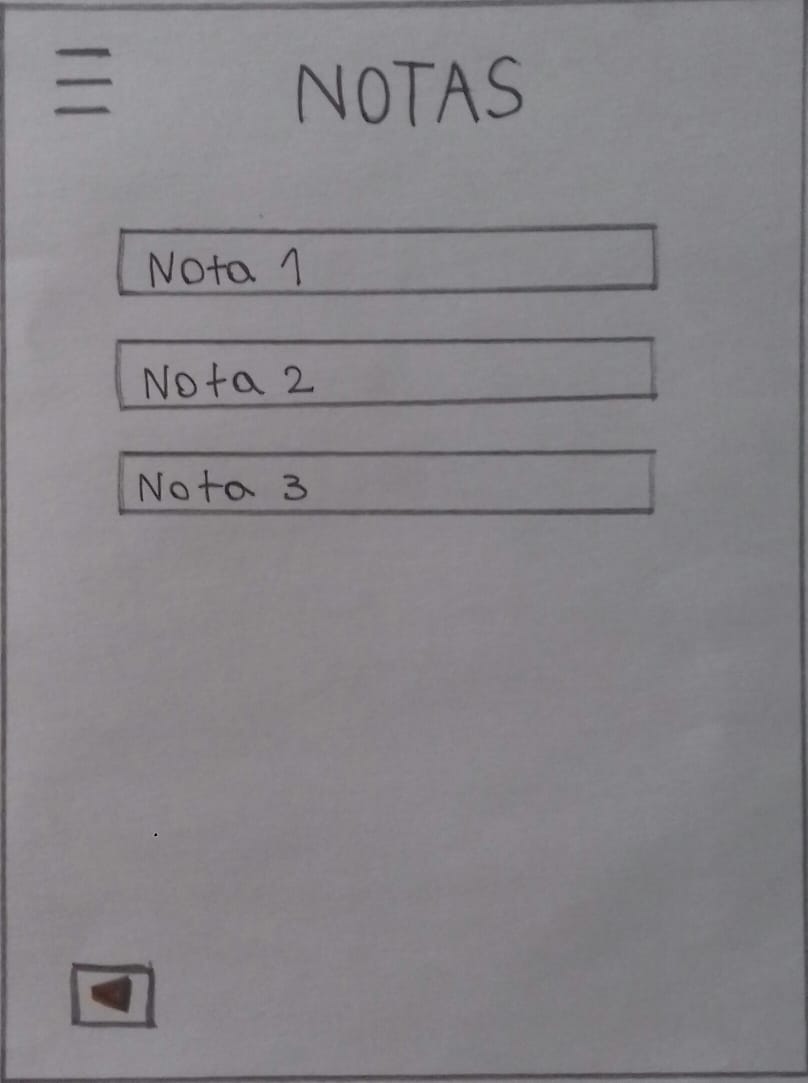 NOTAS
Nota 1
Nota 2
Nota 3